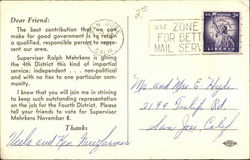 Dear Friend:
The best contribution that we can
make for good government is to retain
a qualified, responsible person to repre-
sent our area.
Supervisor Ralph Mehrkens is giving
the 4th District this kind of impartial
service: independent . . . non-political
and with no ties to one particular com-
munity.
I know that you will join me in striving
to keep such outstanding representation
on the job for the Fourth District. Please
tell your friends to vote for Supervisor
Mehrkens November 8.
Thanks
SAN JOSE
CALIF
USE ZONE
FOR BETT
MAIL SERV
LIBERTY
Mr. and Mrs E Hyde
2199 Tulip Rd
San Jose Calif.